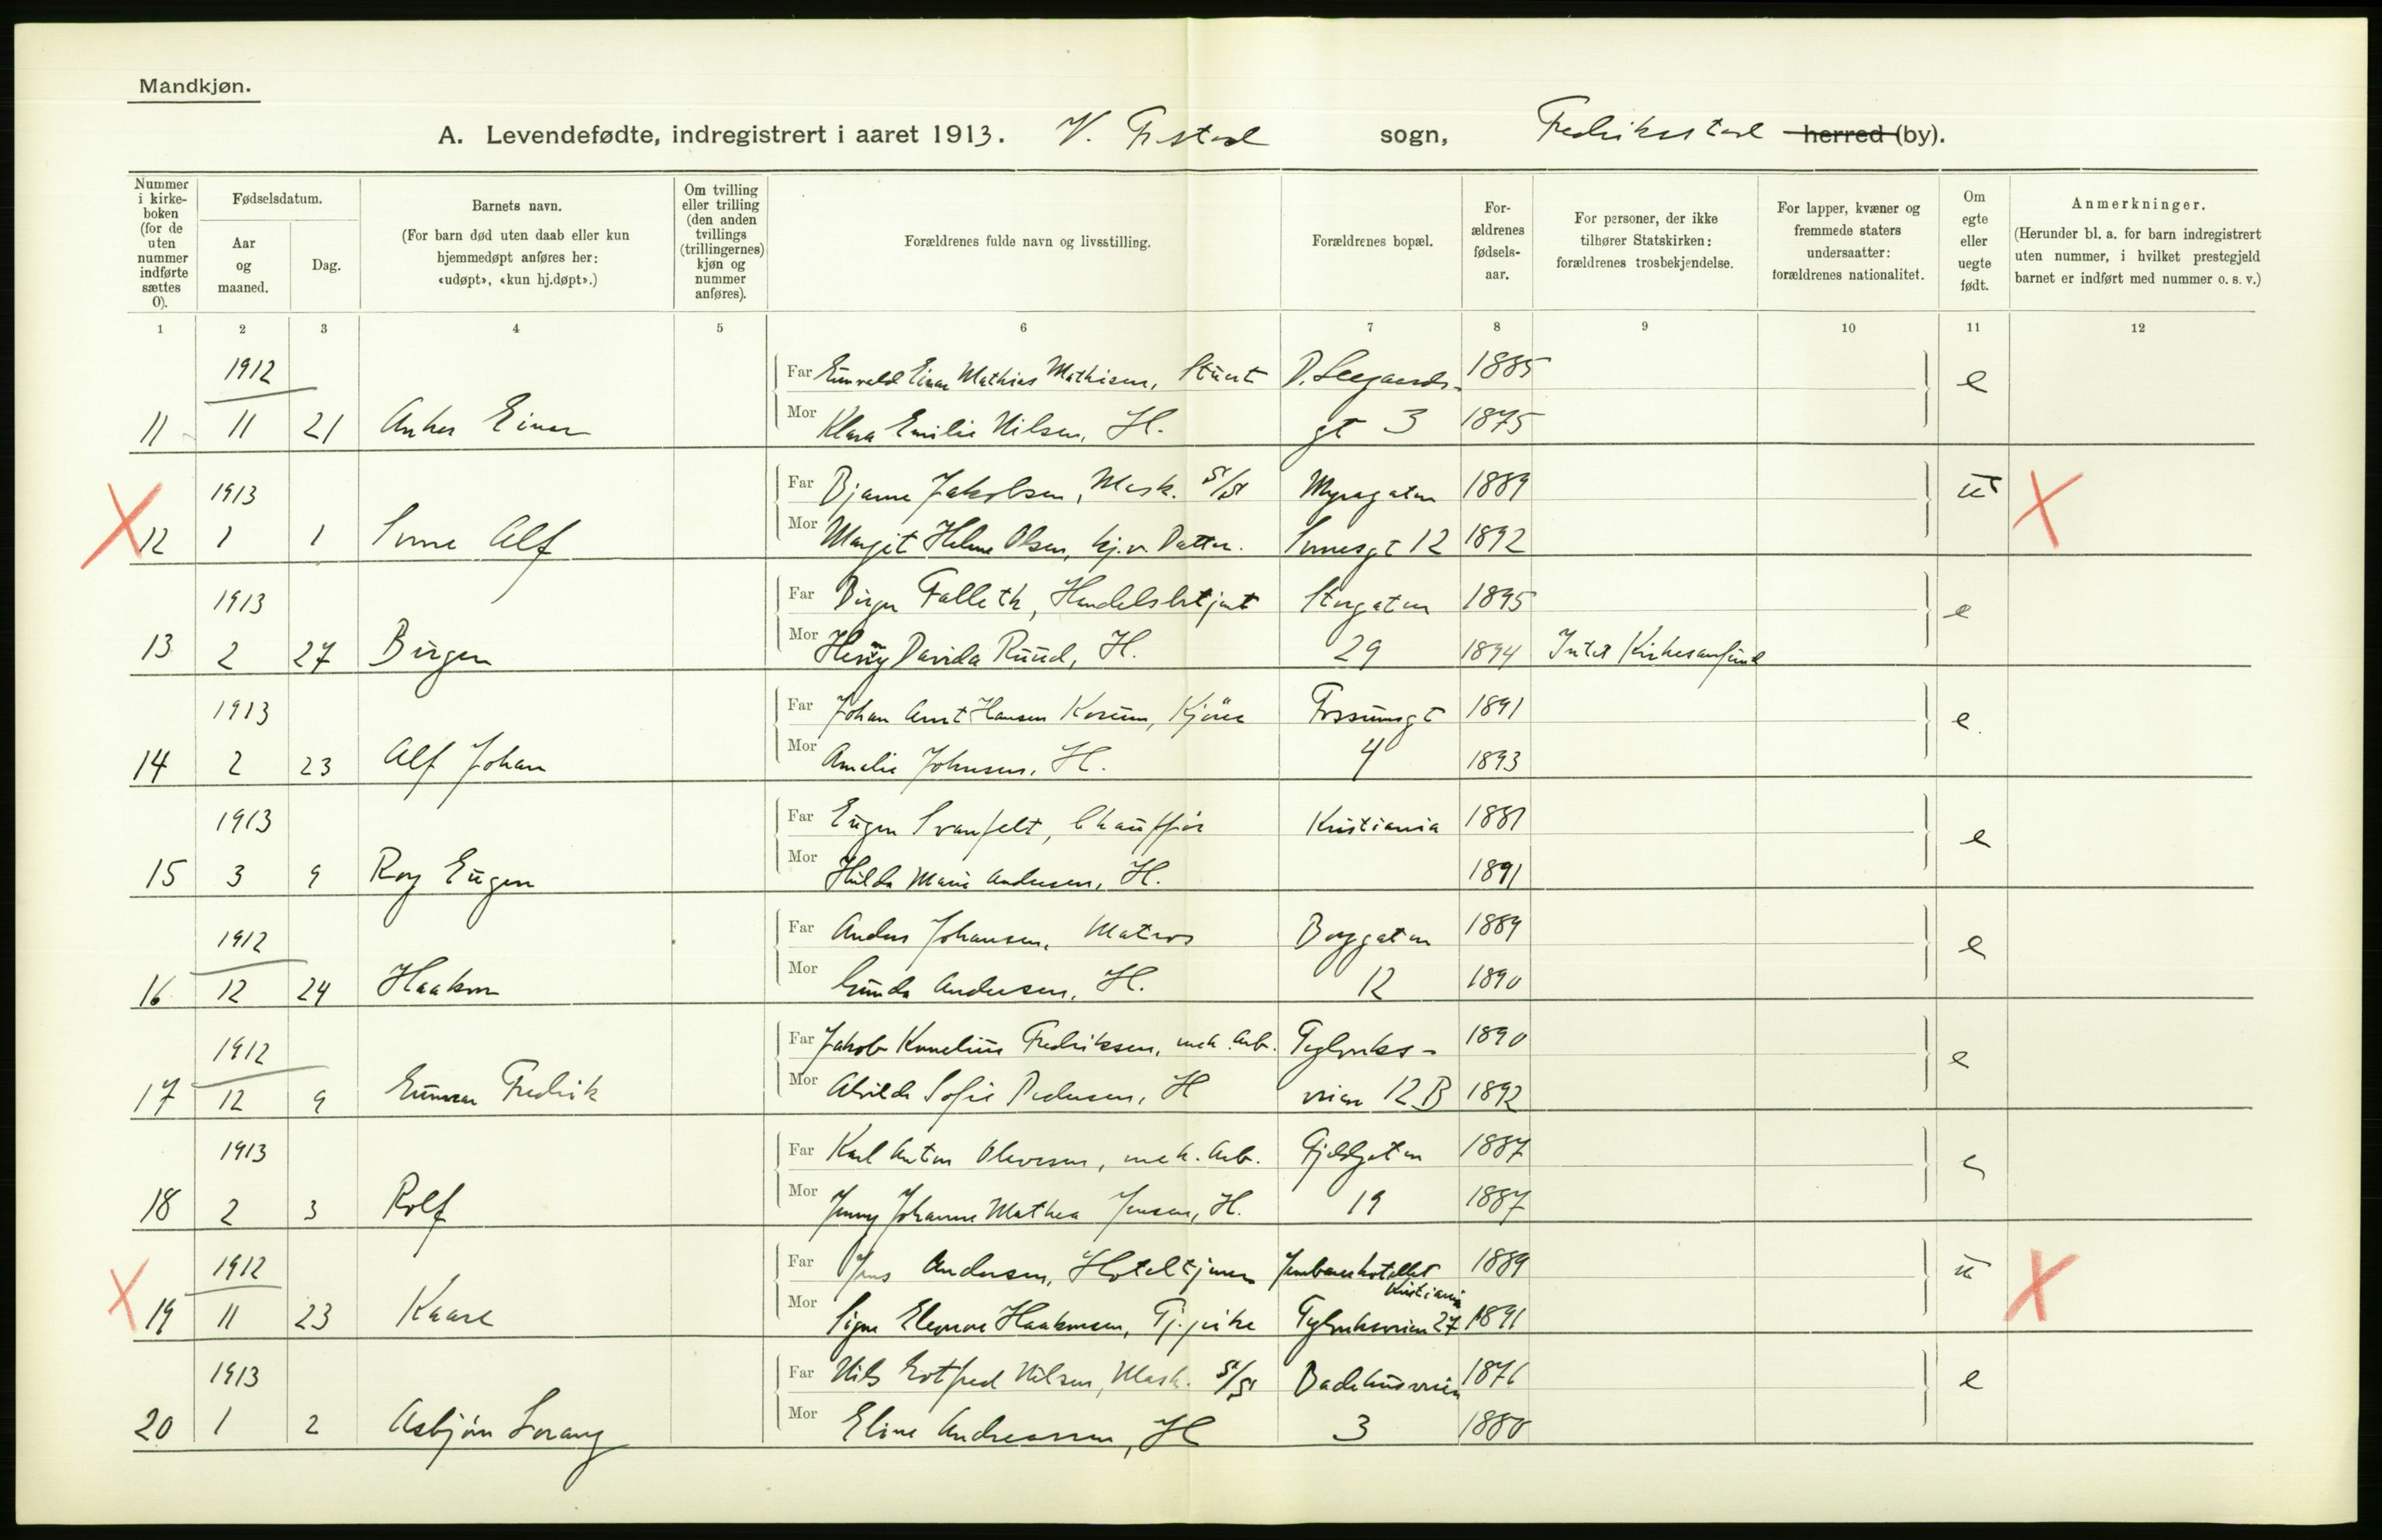 Mandkjøn.
A. Levendefødte, indregistrert i aaret 1913. V. Frstad sogn, Fredriksstad herred (by).
Nummer i kirkeboken (for de uten nummer indførte sættes 0).
Fødselsdatum.
Aar og maaned.
Dag.
Barnets navn.
(For barn død uten daab eller kun hjemmedøpt anføres her: «udøpt», «kun hj.døpt».)
Om tvilling eller trilling (den anden tvillings (trillingernes) kjøn og nummer anføres).
Forældrenes fulde navn og livsstilling.
Forældrenes bopæl.
Forældrenes fødselsaar.
For personer, der ikke tilhører Statskirken: forældrenes trosbekjendelse.
For lapper, kvæner og fremmede staters undersaatter: forældrenes nationalitet.
Om egte eller uegte født.
Anmerkninger.
(Herunder bl. a. for barn indregistrert uten nummer, i hvilket prestegjeld barnet er indført med nummer o. s. v.)
1 2 3 4 5 6 7 8 9 10 11 12
1912 Far Einar Mathias Mathisen, 1885 e
11 11 21 Anker Einar Mor Klara Emilie Nilsen, H. gt 3 1875
1913 Far Bjarne Jakobsen, Mask. Myragaten 1889 u
12 1 1 Alf Mor Margit Olsen, hj.v. Datter. 12 1892
1913 Far Birger Falleth, Handelsbetjent Storgaten 1895 e
13 2 27 Birger Mor Davida Ruud, H. 29 1894 Intet Kirkesamfund
1913 Far Johan Arnt Hansen Fossumsgt 1891 e
14 2 23 Alf Johan Mor Amalie Johnsen, H. 4 1893
1913 Far Eugen Svanfelt, Chauffør Kristiania 1881 e
15 3 9 Roy Eugen Mor Hulda Marie Andersen, H. 1891
1912 Far Anders Johansen, Matros Borggaten 1889 e
16 12 24 Haakon Mor Gunda Andersen, H. 12 1890
1912 Far Jakob Kornelius Fredriksen, mek. Arb. Teglverks- 1890 e
17 12 9 Gunnar Fredrik Mor Alvilde Sofie Pedersen, H veien 12 B 1892
1913 Far Karl Anton Olavesen, mek. Arb. 1887 e
18 2 3 Rolf Mor Jenny Johanne Mathea Jensen, H. 19 1887
1912 Far Jens Andersen, Hoteltjener Jernbanehotellet Kristiania 1889 u
19 11 23 Kaare Mor Signe Eleonore Haakonsen, Tj.pike Teglverksveien 27 1891
1913 Far Nils Gotfred Nilsen, Mask. Badehusveien 1876 e
20 1 2 Asbjørn Mor Eline Andreassen, H 3 1880